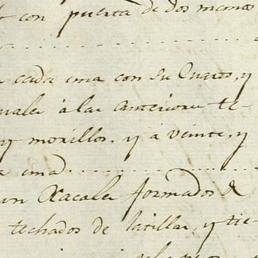 con puerta de dos manos
cada una con su Quarto, y
iguales à las anteriores te-
y morillos, y à veinte, y
a una
un Xacales formados de
techados de latillas, y tie-